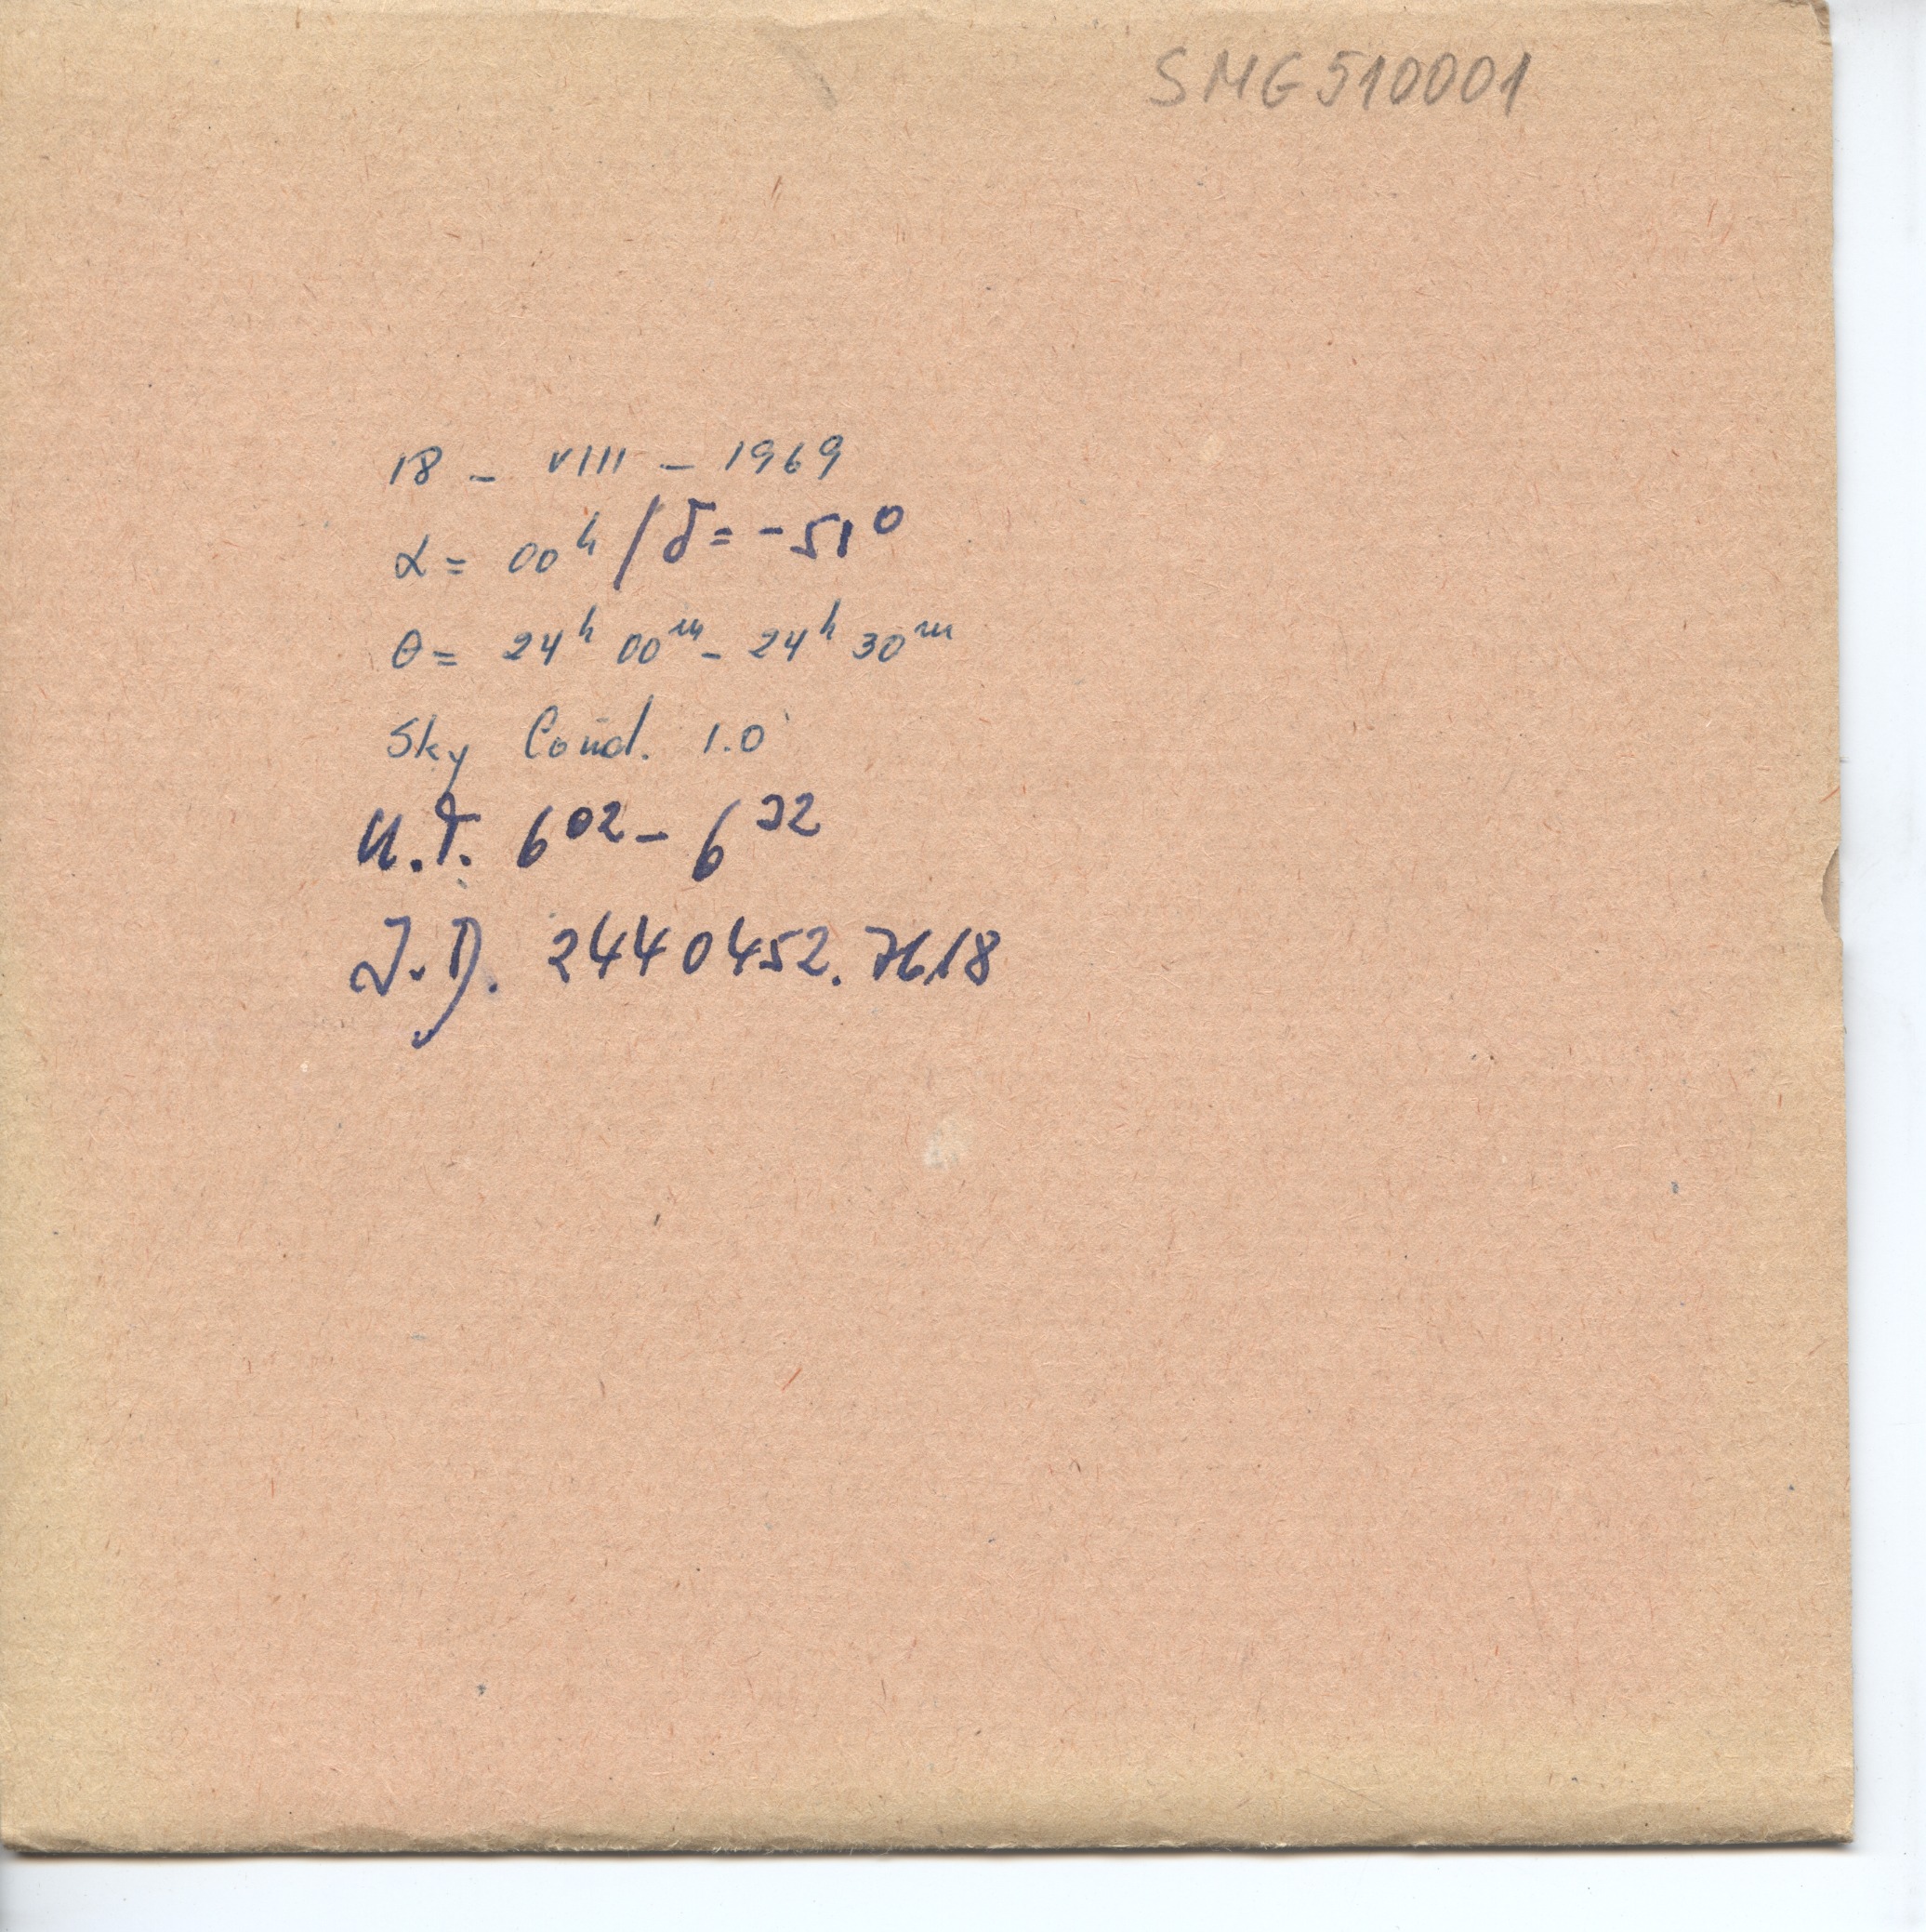 SMG510001
18 - VIII - 1969
α = 00ʰ / δ = -51⁰
θ = 24ʰ 00ᵐ - 24ʰ 30ᵐ
Sky Cond. 1.0
U.T. 6⁰² - 6³²
J.D. 2440452.7618